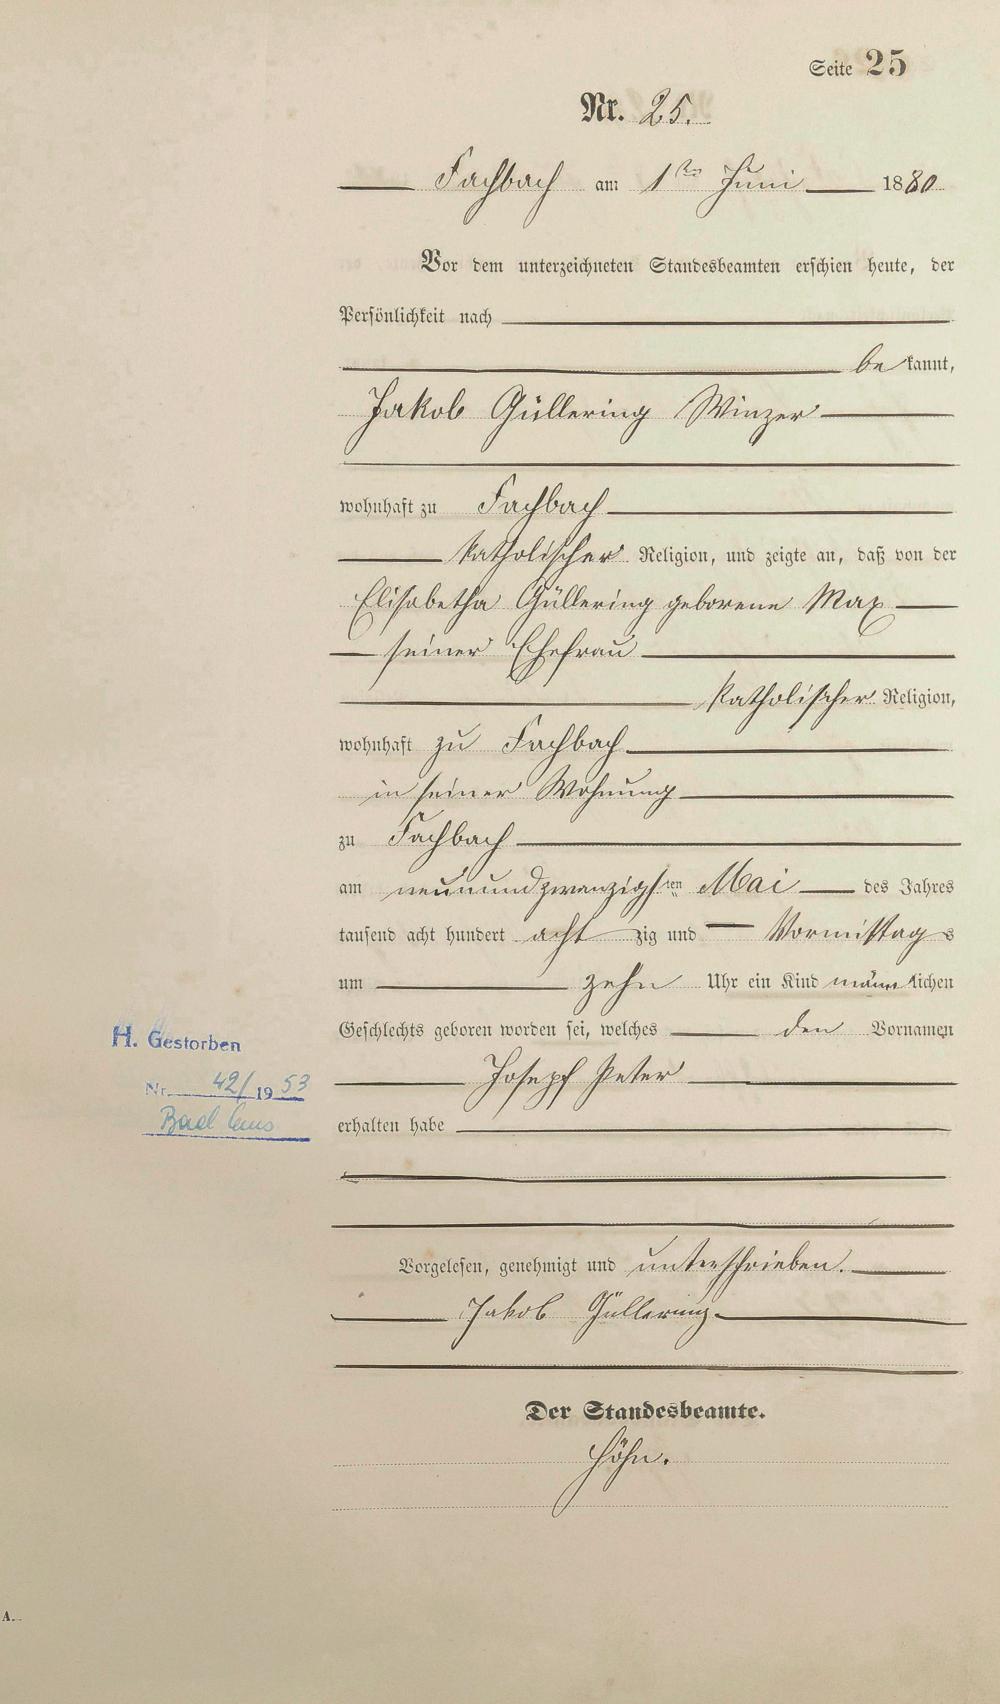 Seite 25
Nr. 25.
Fachbach am 1ten Juni 1880
Vor dem unterzeichneten Standesbeamten erschien heute, der
Persönlichkeit nach
bekannt,
Jakob Güllering Winzer
wohnhaft zu Fachbach
katholischer Religion, und zeigte an, daß von der
Elisabetha Güllering geborene Max
seiner Ehefrau
katholischer Religion,
wohnhaft zu Fachbach
in seiner Wohnung
zu Fachbach
am neunundzwanzigsten Mai des Jahres
tausend acht hundert achtzig und Vormittags
um zehn Uhr ein Kind männlichen
Geschlechts geboren worden sei, welches den Vornamen
H. Gestorben
Nr. 42/1953
Bad Ems
Joseph Peter
erhalten habe
Vorgelesen, genehmigt und unterschrieben.
Jakob Güllering
Der Standesbeamte.
Höhn.
A.